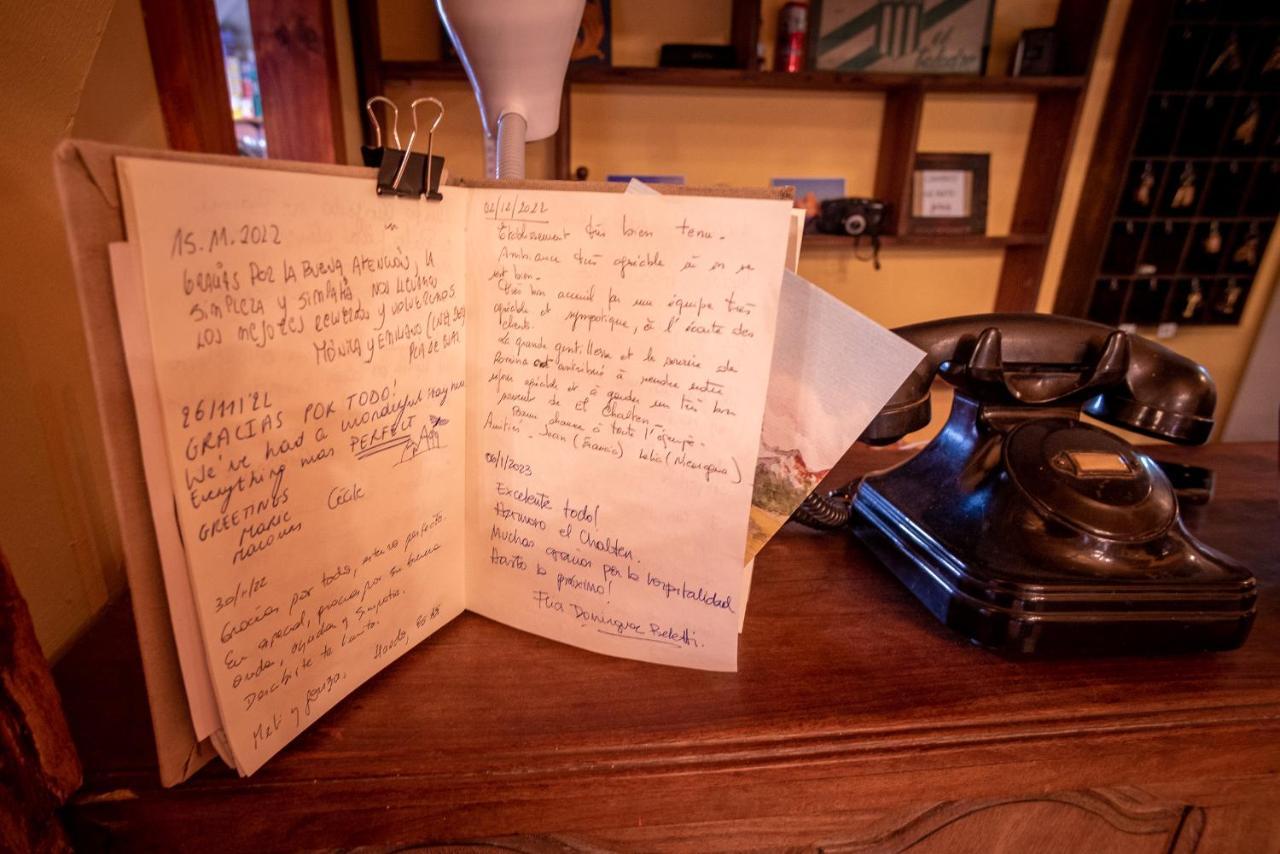 15.11.2022
GRACIAS POR LA BUENA ATENCIÓN, LA
SIMPLEZA Y SIMPATÍA, NOS LLEVAMOS
LOS MEJORES RECUERDOS Y VOLVEREMOS
MÓNICA Y EMILIANO
26/11/22
GRACIAS POR TODO!
We've had a wonderful stay here
Everything was PERFECT
GREETINGS
MARIE Cécile
30/11/22
Gracias por todo, estuvo perfecto.
En especial, gracias por su buena
onda, ayuda y simpatía.
Meli y Gonza.
02/12/2022
Etablissement très bien tenu.
Ambiance très agréable où on se
sent bien.
Très bon accueil par une équipe très
agréable et sympatique, à l'écoute des
clients.
La grande gentillesse et le sourire de
Romina ont contribué à rendre notre
séjour agréable et à garder un très bon
souvenir de el Chalten.
Bonne chance à toute l'équipe.
Amitiés. Jean (Francia) (Nicaragua)
06/1/2023
Excelente todo!
Hermoso el Chalten.
Muchas gracias por la hospitalidad
Hasta la próxima!